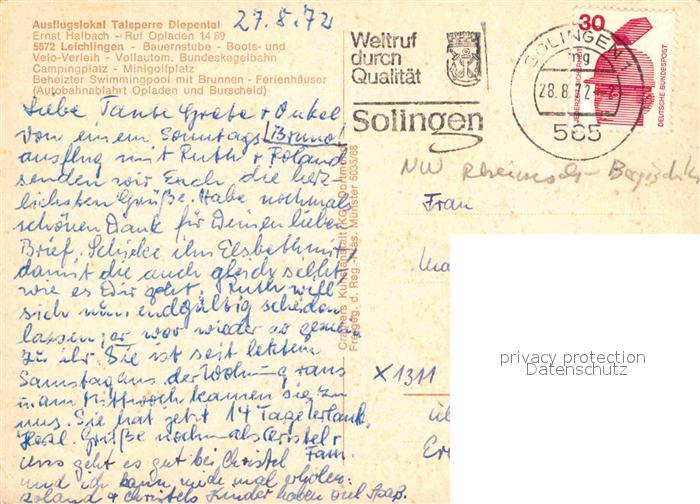 27.8.72
Ausflugslokal Talsperre Diepental
Ernst Halbach - Ruf Opladen 14 89
5672 Leichlingen - Bauernstube - Boots- und
Velo-Verleih - Vollautom. Bundeskegelbahn
Campingplatz - Minigolfplatz
Beheizter Swimmingpool mit Brunnen - Ferienhäuser
(Autobahnabfahrt Opladen und Burscheid)
Liebe Tante Grete + Onkel
von einem Sonntags Bruno
ausflug mit Ruth + Roland
senden wir Euch die herz-
lichsten Grüße. Habe nochmals
schönen Dank für Deinen lieben
Brief. Schicke ihn Elsbeth mit
damit die auch gleich selbst
wie es Dir geht. Ruth will
sich nun endgültig scheiden
lassen; er war wieder so gemein
zu ihr. Sie ist seit letztem
Samstag aus der Wohnung raus
u. am Mittwoch kamen sie zu
uns. Sie hat jetzt 14 Tage Urlaub.
Herzl. Grüße nochmals Christel + Fam.
Uns geht es gut bei Christel
und ich kann mich mal erholen.
Roland + Christels Kinder haben viel Spaß.
Cramers Kunstanstalt KG, Dortmund
Freigeg. d. Reg.-Präs. Münster 5035/68
Weltruf
durch
Qualität
Solingen
SOLINGEN 1
28.8.72
565
30
DEUTSCHE BUNDESPOST
NW Rheinisch-Bergischer
Frau
X1311
privacy protection
Datenschutz